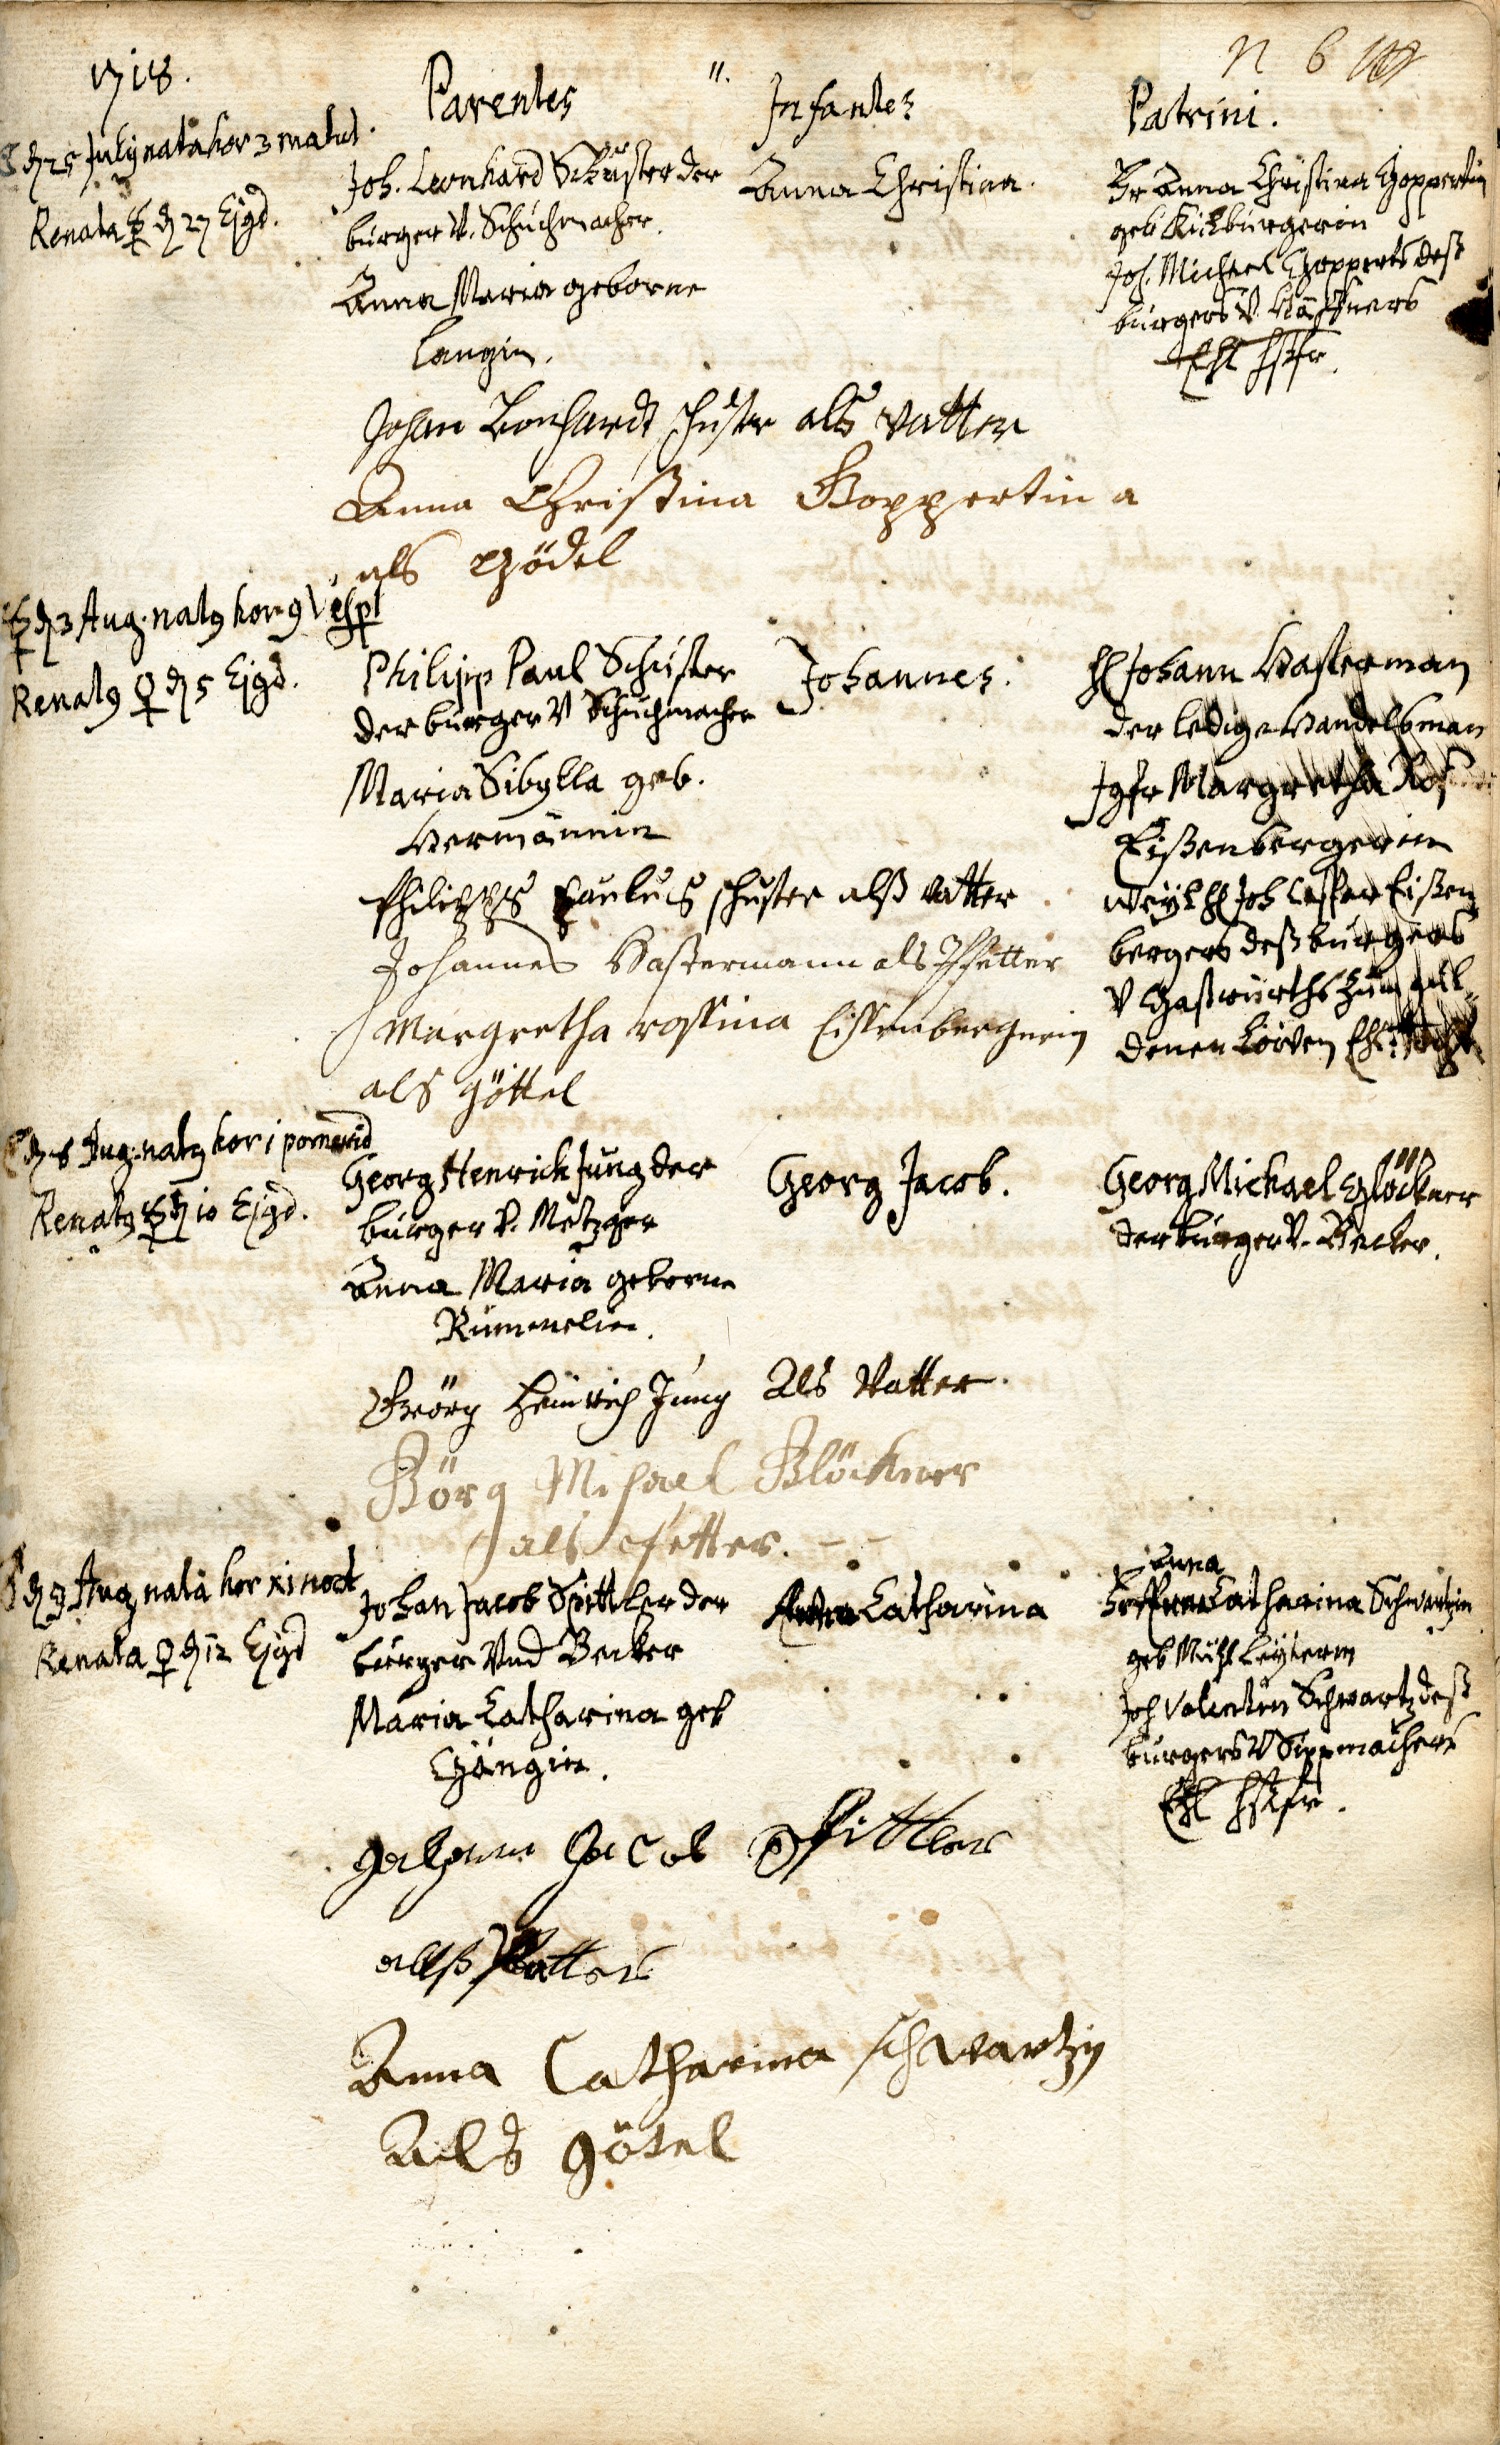 1718.
Parentes
Infantes
Patrini.
25 July nata hor 3 matut.
Renata ☿ d 27 Ejgd.
Joh. Leonhard Schuster der
burger V. Schuchmacher.
Anna Maria geborne
Langin.
Anna Christina.
Fr Anna Christina Goppertin
geb
Joh. Michael Gopperts deß
burgers V. Haffners
Ehl hßfr.
Johan Leonhardt schuster als vatter
Anna Christina Goppertin a
als Gödel
☿ d 3 Aug. nat9 hor 9 Vesp
Renat9 ♀ d 5 Ejgd.
Philipp Paul Schuster
der burger V Schuchmacher
Maria Sibylla geb.
Hermännin
Johannes.
H Johann Hasterman
der ledige Handelsman
Jgfr Margretha Ros
Eißenbergerin
weyl H Joh Casper Eißen
bergers deß burgers
V Gastwürths zum gül
denen Löwen Ehl. Tocht
Philippus Paulus schuster alß vatter
Johannes Hastermann als Pfetter
Margretha rossina Eissenbergerin
als göttel
d 8 Aug. nat9 hor 1 pomerid
Renat9 ☿ d 10 Ejgd.
Georg Henrich Jung der
burger V. Metzger
Anna Maria geborne
Rümmelin.
Georg Jacob.
Georg Michael Glöckner
der burger V. Becker.
Geörg Heinrich Jung Als Vatter.
Görg Mihael Glöckner
als Pfetter.
d 9 Aug nata hor xi noct
Renata ♀ d 12 Ejgd
Johan Jacob Spittler der
burger Vnd Becker
Maria Catharina geb
Gängin.
Catharina
Anna
Fr Catharina Schwartzin
geb
Joh Valentin Schwartz deß
burgers V Sippmachers
Ehl hßfr.
Johann Jacob Spittler
alß Vatter
Anna Catharina schwartzin
Als götel